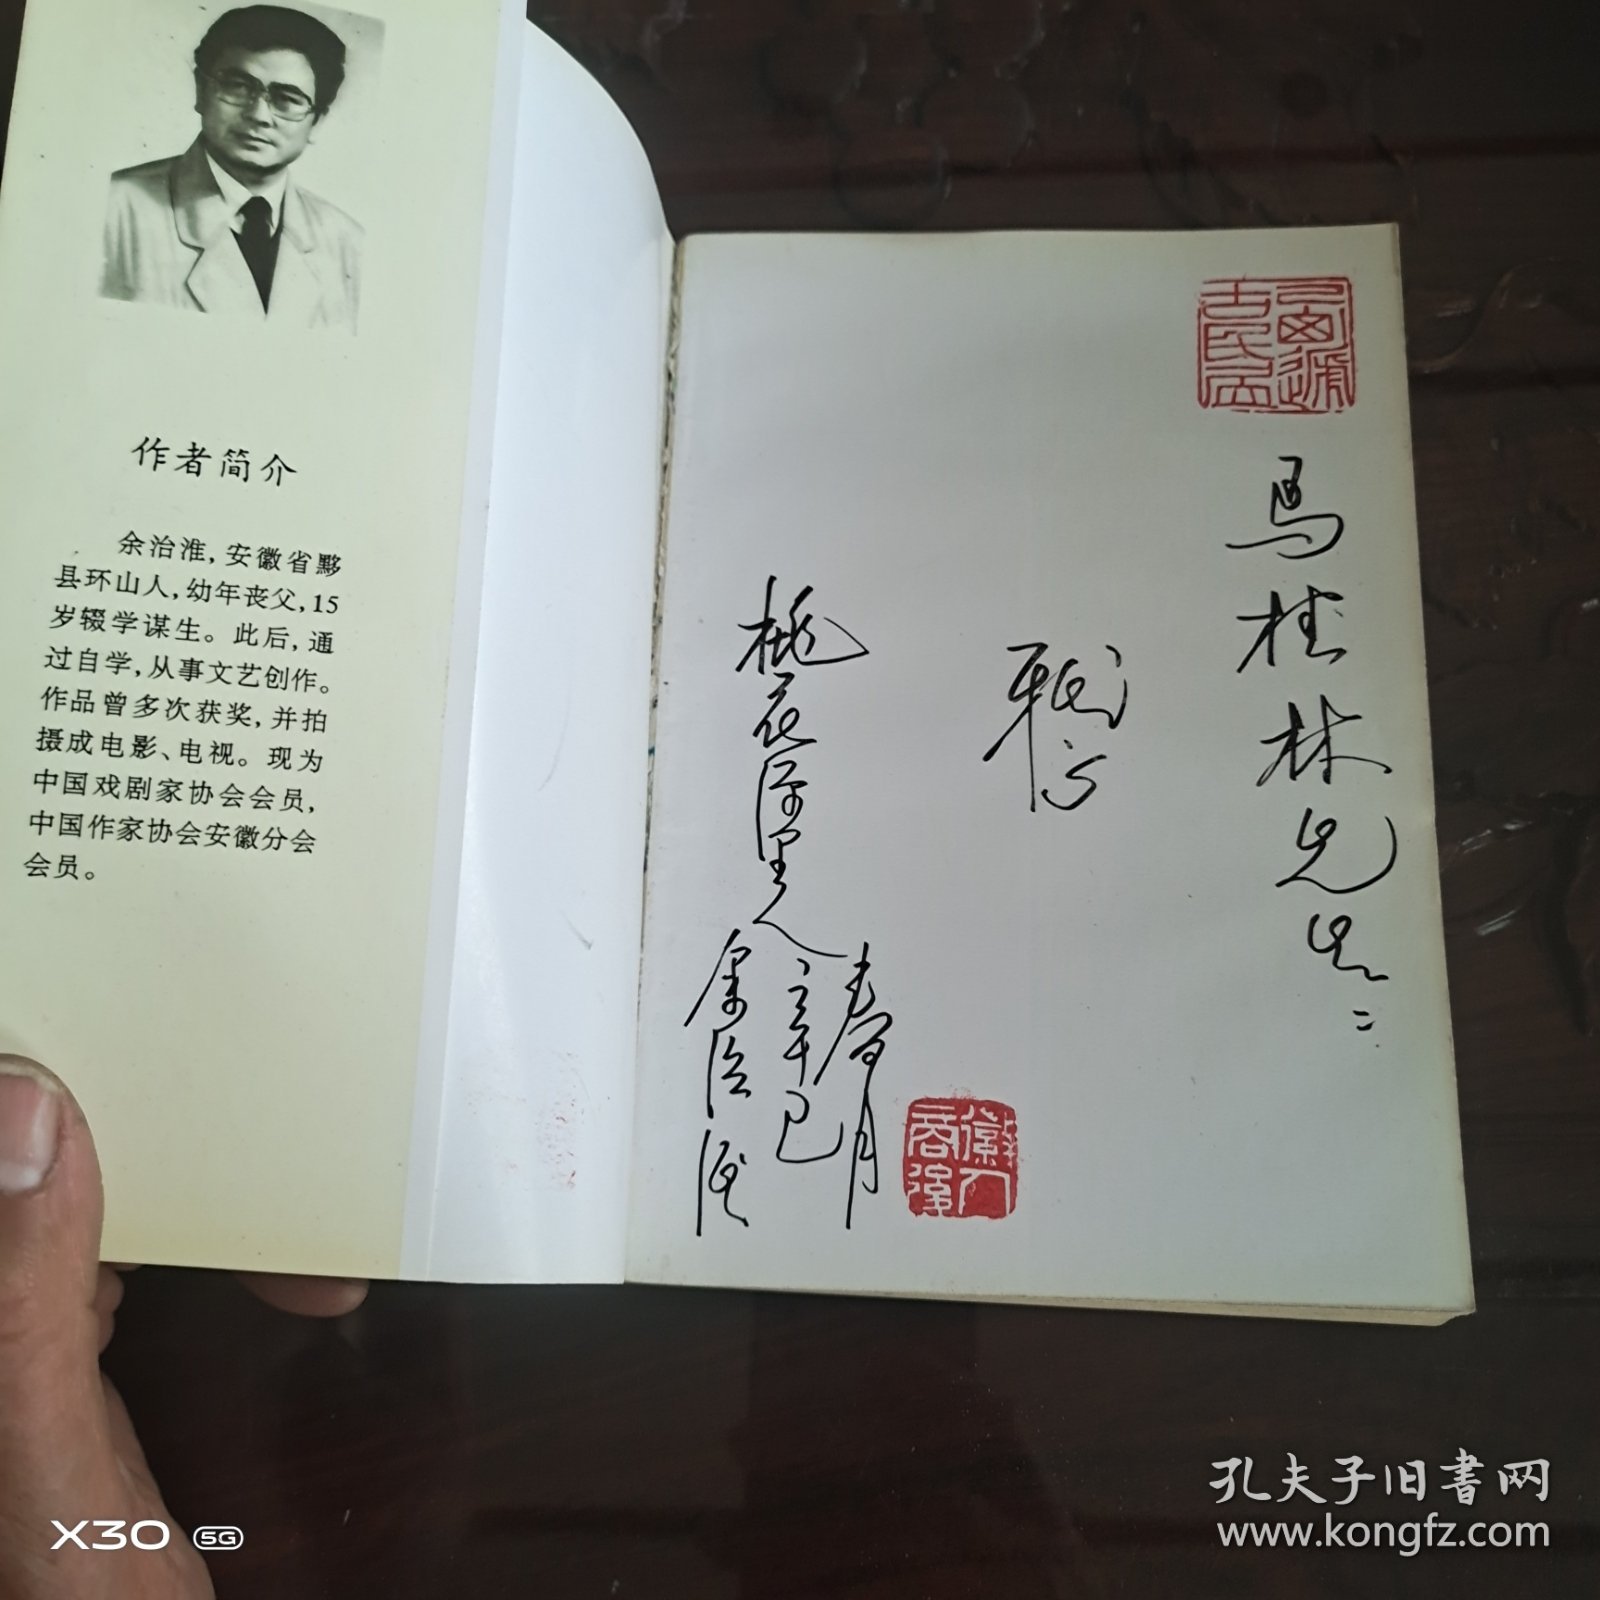 作者简介
余治淮,安徽省黟
县环山人,幼年丧父,15
岁辍学谋生。此后,通
过自学,从事文艺创作。
作品曾多次获奖,并拍
摄成电影、电视。现为
中国戏剧家协会会员,
中国作家协会安徽分会
会员。
马桂林先生
雅
桃花源里人
余治淮
辛巳
春月
X30 5G
孔夫子旧书网
www.kongfz.com